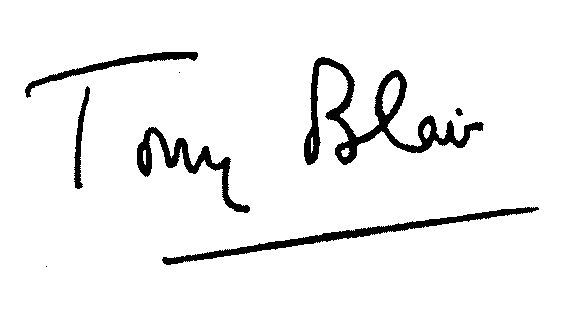 Tony Blair